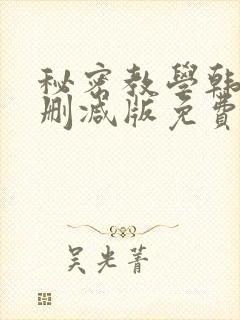 秘密教學韩
删减版免費
吴光菁